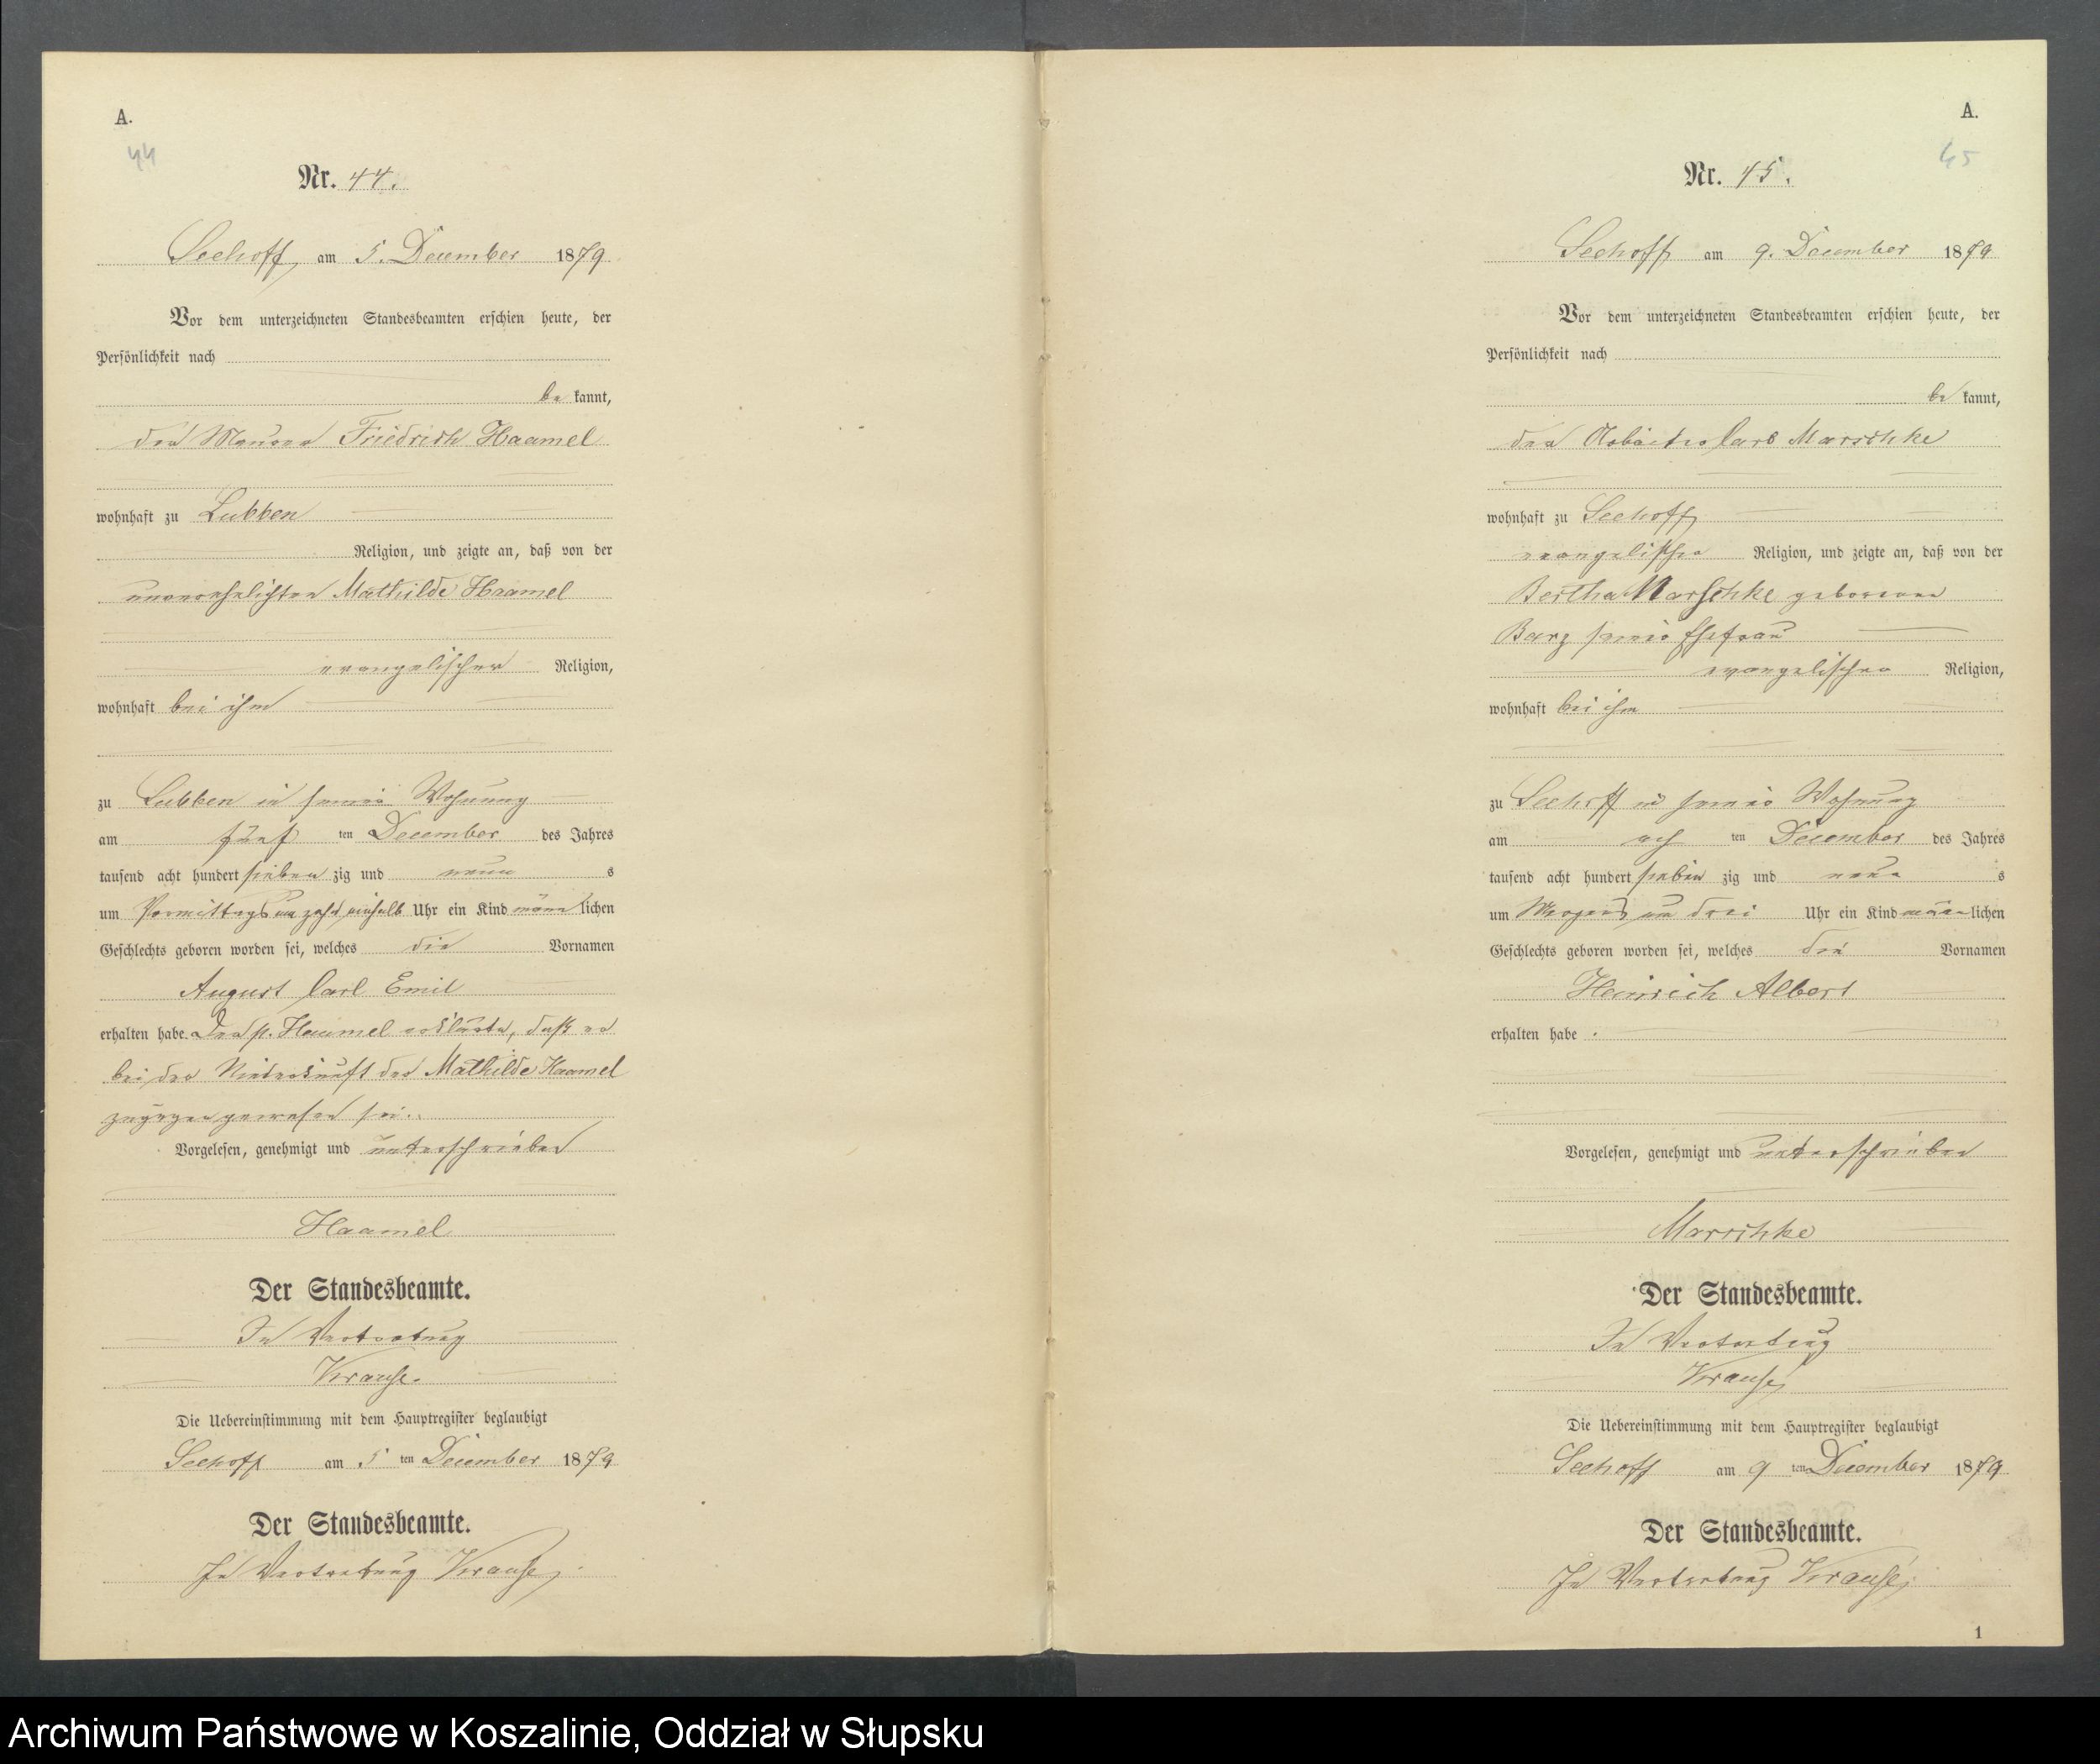 A.
44
Nr. 44.
Seehoff, am 5. December 1879
Vor dem unterzeichneten Standesbeamten erschien heute, der
Persönlichkeit nach
be kannt,
der Maurer Friedrich Haamel
wohnhaft zu Lubben
Religion, und zeigte an, daß von der
unverehelichten Mathilde Haamel
evangelischer Religion,
wohnhaft bei ihm
zu Lubben in seiner Wohnung
am fünf ten December des Jahres
tausend acht hundert sieben zig und neun s
um Vormittags um zehn einhalb Uhr ein Kind männ lichen
Geschlechts geboren worden sei, welches die Vornamen
August Carl Emil
erhalten habe. Der p. Haamel erklärte, daß er
bei der Niederkunft der Mathilde Haamel
zugegen gewesen sei.
Vorgelesen, genehmigt und unterschrieben
Haamel
Der Standesbeamte.
In Vertretung
Krause.
Die Uebereinstimmung mit dem Hauptregister beglaubigt
Seehoff am 5 ten December 1879
Der Standesbeamte.
In Vertretung Krause
A.
45
Nr. 45.
Seehoff am 9. December 1879
Vor dem unterzeichneten Standesbeamten erschien heute, der
Persönlichkeit nach
be kannt,
der Arbeiter Carl Marschke
wohnhaft zu Seehoff
evangelischer Religion, und zeigte an, daß von der
Bertha Marschke geborenen
Barz seiner Ehefrau
evangelischer Religion,
wohnhaft bei ihm
zu Seehoff in seiner Wohnung
am ach ten December des Jahres
tausend acht hundert sieben zig und neun s
um Morgens um drei Uhr ein Kind männ lichen
Geschlechts geboren worden sei, welches die Vornamen
Heinrich Albert
erhalten habe.
Vorgelesen, genehmigt und unterschrieben
Marschke
Der Standesbeamte.
In Vertretung
Krause
Die Uebereinstimmung mit dem Hauptregister beglaubigt
Seehoff am 9 ten December 1879
Der Standesbeamte.
In Vertretung Krause
1
Archiwum Państwowe w Koszalinie, Oddział w Słupsku